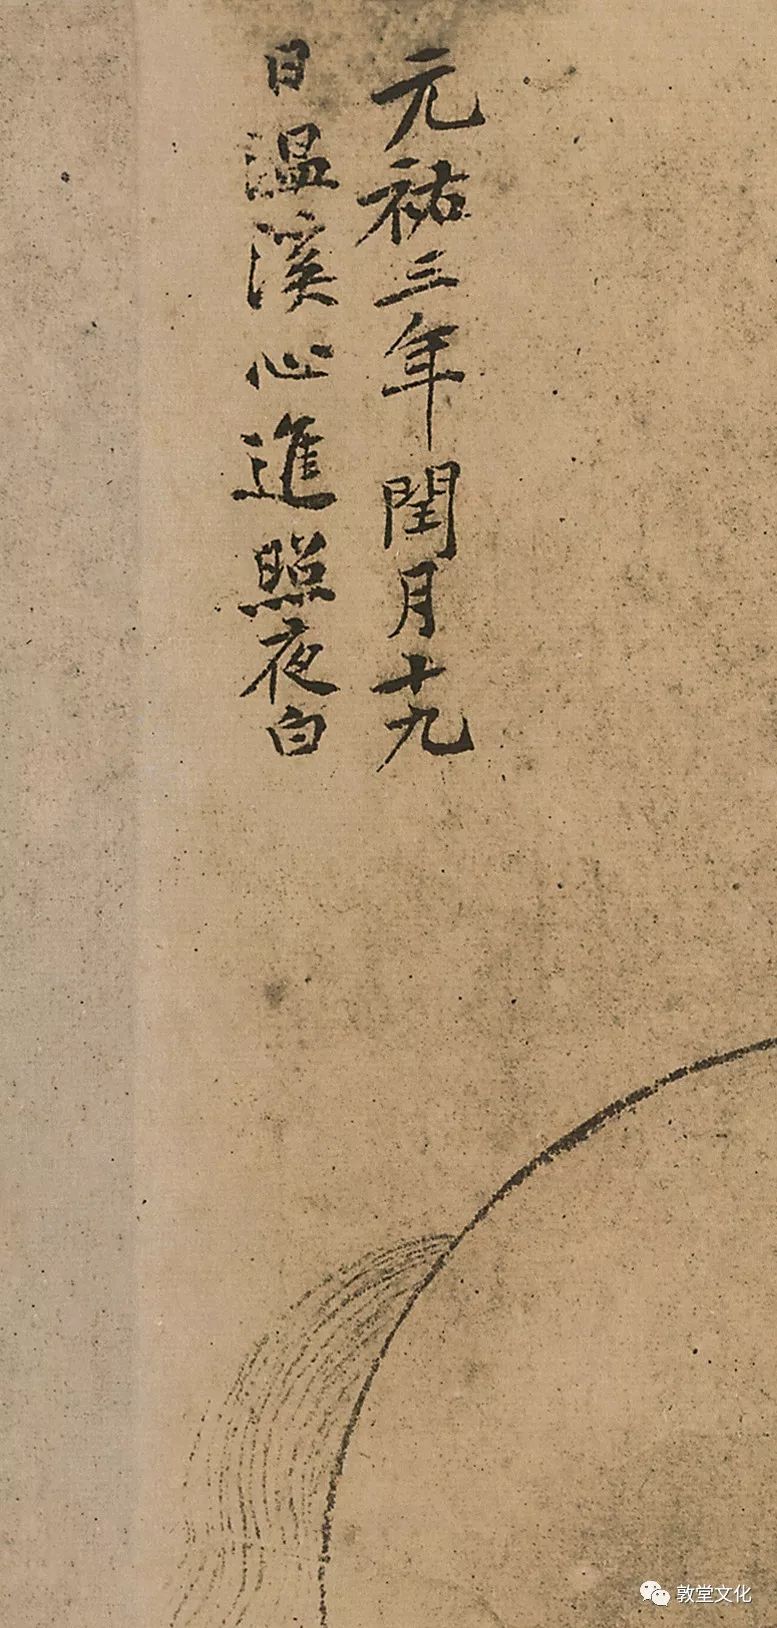 元祐三年閏月十九
日溫溪心進照夜白
敦堂文化